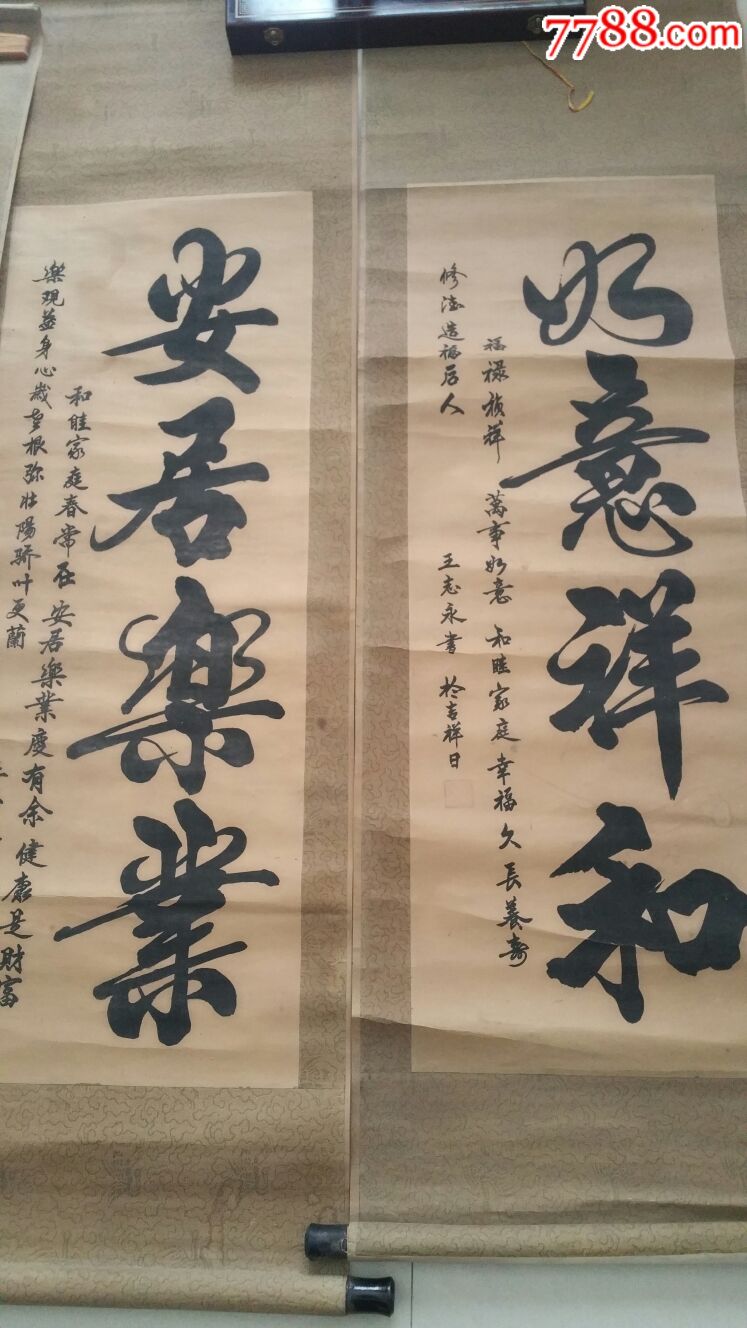 7788.com
如意祥和
福禄祯祥 萬事如意 和睦家庭 幸福久長 養壽
修德造福后人
王志永書 於吉祥日
安居樂業
和睦家庭春常在 安居樂業慶有余 健康是財富
樂观益身心 歲老根弥壮 陽骄叶更蘭